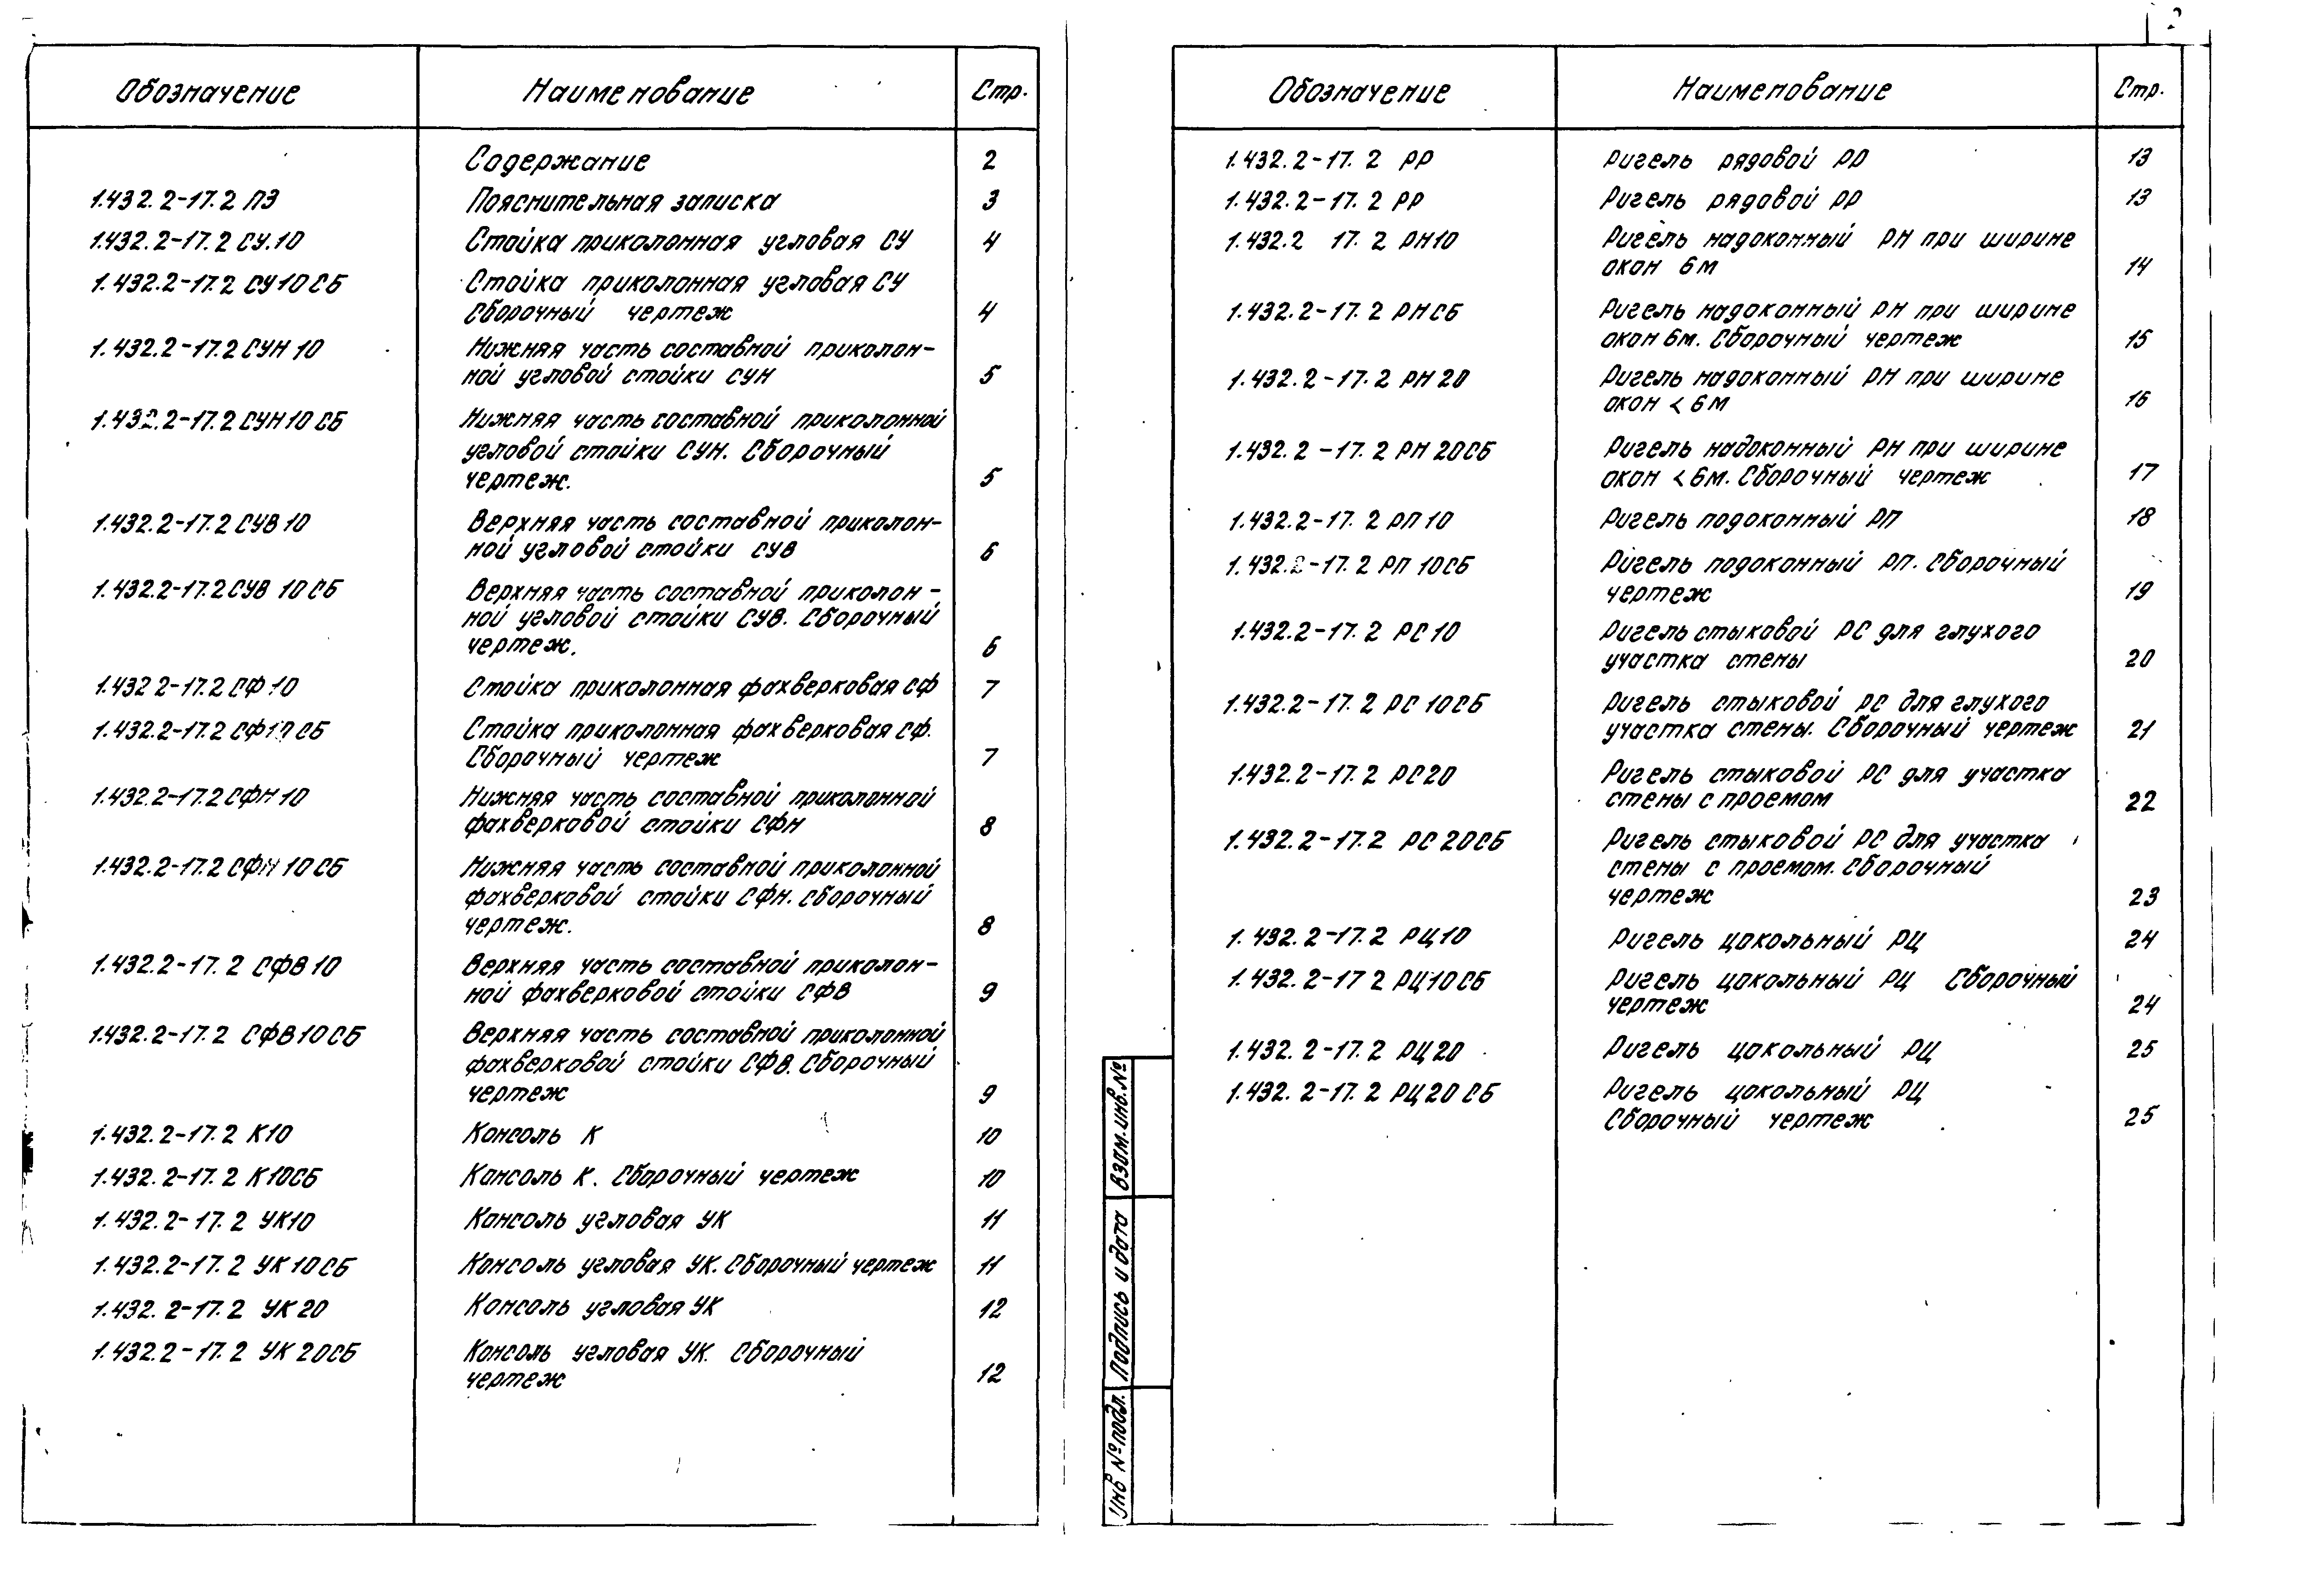 2
Обозначение Наименование Стр.
Содержание 2
1.432.2-17.2 ПЗ Пояснительная записка 3
1.432.2-17.2 СУ.10 Стойка приколонная угловая СУ 4
1.432.2-17.2 СУ10СБ Стойка приколонная угловая СУ
Сборочный чертеж 4
1.432.2-17.2 СУН 10 Нижняя часть составной приколон-
ной угловой стойки СУН 5
1.432.2-17.2 СУН 10 СБ Нижняя часть составной приколонной
угловой стойки СУН. Сборочный
чертеж. 5
1.432.2-17.2 СУВ 10 Верхняя часть составной приколон-
ной угловой стойки СУВ 6
1.432.2-17.2 СУВ 10 СБ Верхняя часть составной приколон-
ной угловой стойки СУВ. Сборочный
чертеж. 6
1.432 2-17.2 СФ 10 Стойка приколонная фахверковая СФ 7
1.432.2-17.2 СФ10 СБ Стойка приколонная фахверковая СФ.
Сборочный чертеж 7
1.432.2-17.2 СФН 10 Нижняя часть составной приколонной
фахверковой стойки СФН 8
1.432.2-17.2 СФН 10 СБ Нижняя часть составной приколонной
фахверковой стойки СФН. Сборочный
чертеж. 8
1.432.2-17.2 СФВ 10 Верхняя часть составной приколон-
ной фахверковой стойки СФВ 9
1.432.2-17.2 СФВ 10 СБ Верхняя часть составной приколонной
фахверковой стойки СФВ. Сборочный
чертеж 9
1.432.2-17.2 К10 Консоль К 10
1.432.2-17.2 К10СБ Консоль К. Сборочный чертеж 10
1.432.2-17.2 УК10 Консоль угловая УК 11
1.432.2-17.2 УК10СБ Консоль угловая УК. Сборочный чертеж 11
1.432.2-17.2 УК 20 Консоль угловая УК 12
1.432.2-17.2 УК 20СБ Консоль угловая УК. Сборочный
чертеж 12
Обозначение Наименование Стр.
1.432.2-17.2 РР Ригель рядовой РР 13
1.432.2-17.2 РР Ригель рядовой РР 13
1.432.2 17.2 РН10 Ригель надоконный РН при ширине
окон 6м 14
1.432.2-17.2 РНСБ Ригель надоконный РН при ширине
окон 6м. Сборочный чертеж 15
1.432.2-17.2 РН 20 Ригель надоконный РН при ширине
окон < 6м 16
1.432.2-17.2 РН 20СБ Ригель надоконный РН при ширине
окон < 6м. Сборочный чертеж 17
1.432.2-17.2 РП 10 Ригель подоконный РП 18
1.432.2-17.2 РП 10СБ Ригель подоконный РП. Сборочный
чертеж 19
1.432.2-17.2 РС 10 Ригель стыковой РС для глухого
участка стены 20
1.432.2-17.2 РС 10СБ Ригель стыковой РС для глухого
участка стены. Сборочный чертеж 21
1.432.2-17.2 РС20 Ригель стыковой РС для участка
стены с проемом 22
1.432.2-17.2 РС 20СБ Ригель стыковой РС для участка
стены с проемом. Сборочный
чертеж 23
1.432.2-17.2 РЦ10 Ригель цокольный РЦ 24
1.432.2-17 2 РЦ10СБ Ригель цокольный РЦ Сборочный
чертеж 24
1.432.2-17.2 РЦ20 Ригель цокольный РЦ 25
1.432.2-17.2 РЦ20 СБ Ригель цокольный РЦ
Сборочный чертеж 25
Взам.инв.№
Подпись и дата
Инв № подл.